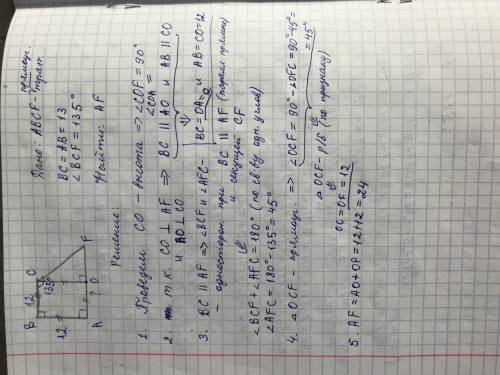 Дано: ABCF - прямоуг. трап.
BC = AB = 13
∠BCF = 135°
Найти: AF
B 12 C
135°
12
A ? O F
Решение:
1. Проведем CO - высота => ∠COF = 90°
∠COA =
2. т.к. CO ⊥ AF => BC || AO и AB || CO
и AO ⊥ CO
BC = OA и AB = CO = 12
3. BC || AF => ∠BCF и ∠AFC -
- односторон. при BC || AF (паралл. прямые)
и секущей CF
∠BCF + ∠AFC = 180° (по св-ву одн. углов)
∠AFC = 180° - 135° = 45°
4. △OCF - прямоуг. => ∠OCF = 90° - ∠OFC = 90° - 45° =
= 45°
△OCF - р/б (по признаку)
OC = OF = 12
5. AF = AO + OF = 12 + 12 = 24